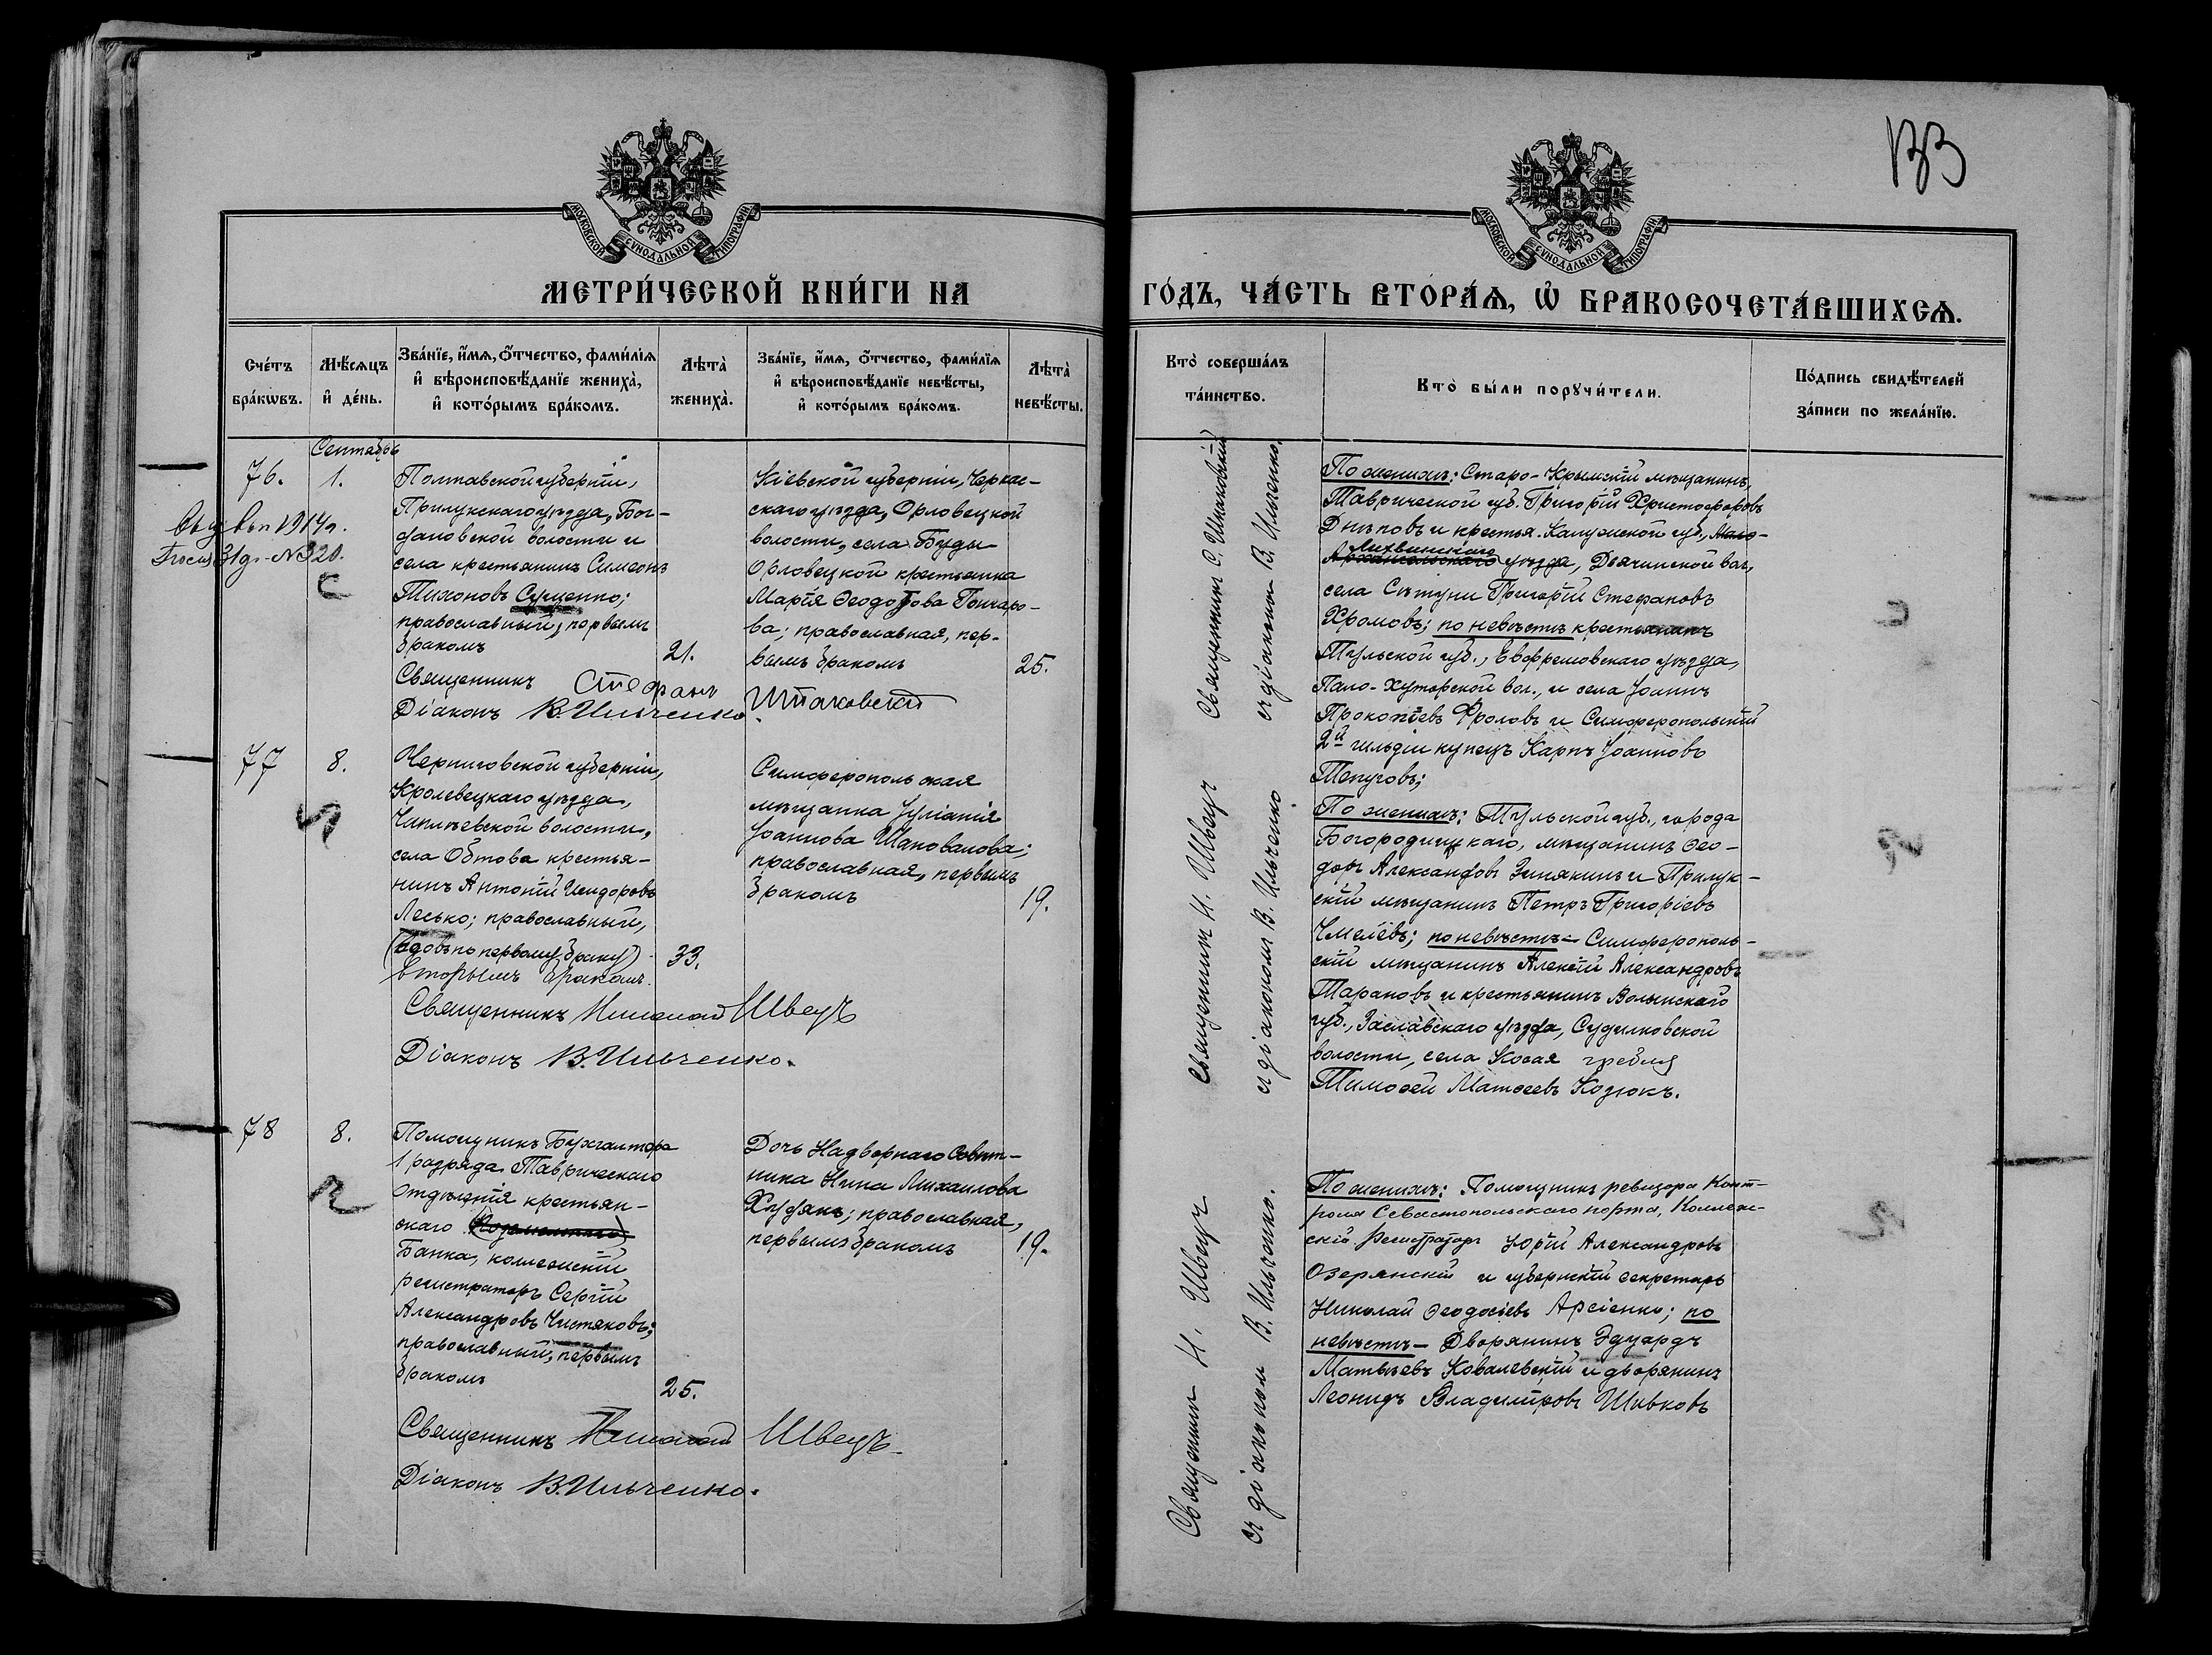 133
МОСКОВСКОЙ СѴНОДАЛЬНОЙ ТИПОГРАФІИ
МОСКОВСКОЙ СѴНОДАЛЬНОЙ ТИПОГРАФІИ
МЕТРИ́ЧЕСКОЙ КНИ́ГИ НА
ГО́ДЪ, ЧА́СТЬ ВТОРА́Ѧ, Ѡ҆ БРАКОСОЧЕТА́ВШИХСѦ.
Сче́тъ
бра́кѡвъ.
Мѣ́сѧцъ
и҆ де́нь.
Зва́нїе, и҆́мѧ, ѻ҆́тчество, фами́лїѧ
и҆ вѣроисповѣ́данїе жениха̀,
и҆ кото́рымъ бра́комъ.
Лѣта̀
жениха̀.
Зва́нїе, и҆́мѧ, ѻ҆́тчество, фами́лїѧ
и҆ вѣроисповѣ́данїе невѣ́сты,
и҆ кото́рымъ бра́комъ.
Лѣта̀
невѣ́сты.
Кто̀ соверша́лъ
та́инство.
Кто̀ бы́ли порꙋчи́тели.
По́дпись свидѣ́телей
за́писи по жела́нїю.
Сентябрь
76.
1.
1914г.
31 д. №320.
Полтавской губерніи,
Прилукскаго уѣзда, Бог-
дановской волости и
села крестьянинъ Симеонъ
Тихоновъ Сущенко;
православный, первымъ
бракомъ
21.
Кіевской губерніи, Черкас-
скаго уѣзда, Орловецкой
волости, села Буды
Орловецкой крестьянка
Марія Ѳеодорова Гончаро-
ва; православная, пер-
вымъ бракомъ
25.
Священникъ Стефанъ Шпаковскій
Діаконъ В. Ильченко.
Священникъ С. Шпаковскій
съ діакономъ В. Ильченко.
По женихѣ: Старо-Крымскій мѣщанинъ,
Таврической губ. Григорій Христофоровъ
Днѣповъ и крестья. Калужской губ.,
Лихвинскаго
уѣзда, Дьячинской вол.,
села Сѣтуни Григорій Стефановъ
Хромовъ; по невѣстѣ крестьянинъ
Тульской губ., Ефремовскаго уѣзда,
Пало-Хуторской вол., и села Іоаннъ
Прокопіевъ Фроловъ и Симферопольскій
2й гильдіи купецъ Карпъ Іоанновъ
77
8.
Черниговской губерніи,
Кролевецкаго уѣзда,
волости,
села Обтова крестья-
нинъ Антоній Исидоровъ
Лесько; православный,
(вдовъ по первому браку)
вторымъ бракомъ.
33.
Симферопольская
мѣщанка Іуліанія
Іоаннова Шаповалова;
православная, первымъ
бракомъ
19.
Священникъ Николай Швецъ
Діаконъ В. Ильченко.
Священникъ Н. Швецъ
съ діакономъ В. Ильченко
По женихѣ: Тульской губ., города
Богородицкаго, мѣщанинъ Ѳео-
доръ Александровъ Зинякинъ и Прилук-
скій мѣщанинъ Петръ Григоріевъ
Чмелёвъ; по невѣстѣ – Симферополь-
скій мѣщанинъ Алексій Александровъ
Тарановъ и крестьянинъ Волынскаго
губ., Заславскаго уѣзда, Судилковской
волости, села Косая гребля
Тимоѳей Матѳеевъ Козюкъ.
78
8.
Помощникъ Бухгалтера
1 разряда Таврическаго
Отдѣленія крестьян-
скаго (Поземельнаго)
Банка, коллежскій
регистраторъ Сергій
Александровъ Чистяковъ;
православный, первымъ
бракомъ
25.
Дочь Надворнаго Совѣт-
ника Нина Михаилова
Худякъ; православная,
первымъ бракомъ
19.
Священникъ Николай Швецъ
Діаконъ В. Ильченко.
Священникъ Н. Швецъ
съ діакономъ В. Ильченко.
По женихѣ: Помощникъ ревизора Конт-
роля Севастопольскаго порта, Коллеж-
скій Регистраторъ Юрій Александровъ
Озерянскій и губернскій секретарь
Николай Ѳеодосіевъ Арсіенко; по
невѣстѣ – Дворянинъ Эдуардъ
Матвѣевъ Ковалевскій и дворянинъ
Леонидъ Владиміровъ Шивковъ